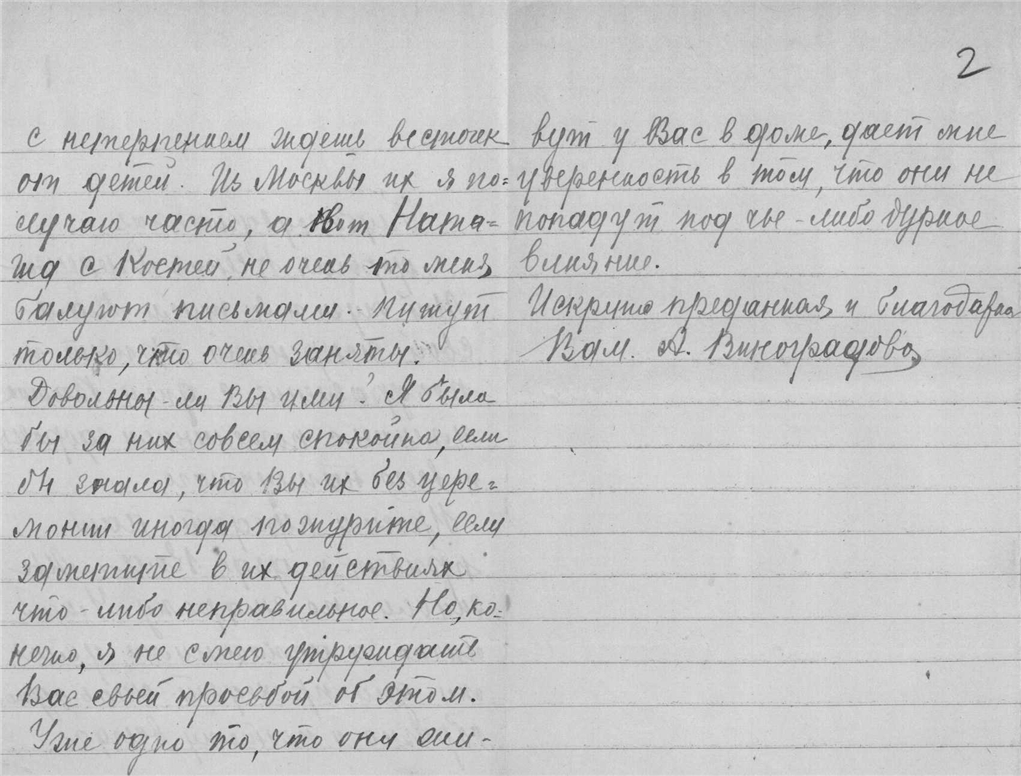 2
с нетерпением ждешь весточек
от детей. Из Москвы их я по=
лучаю часто, а вот Ната=
ша с Костей, не очень то меня
балуют письмами. Пишут
только, что очень заняты.
Довольны-ли Вы ими? Я была
бы за них совсем спокойна, если
бы знала, что Вы их без цере=
монии иногда пожурите, если
заметите в их действиях
что-либо неправильное. Но, ко-
нечно, я не смею утруждать
Вас своей просьбой об этом.
Уже одно то, что они жи-
вут у Вас в доме, дает мне
уверенность в том, что они не
попадут под чье-либо дурное
влияние.
Искренно преданная и благодарная
Вам. А. Виноградова